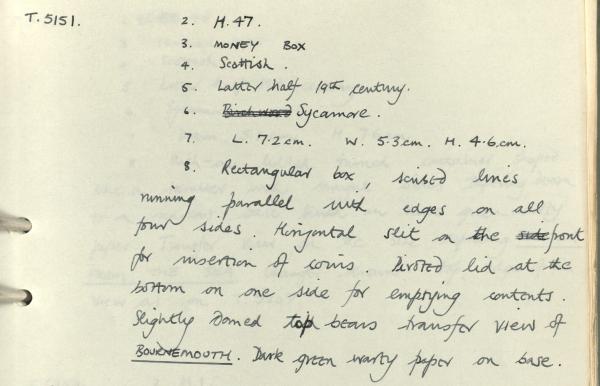 T.5151. 2. H.47.
3. MONEY BOX
4. Scottish.
5. Latter half 19th century.
6. Birchwood Sycamore.
7. L. 7.2cm. W. 5.3cm. H. 4.6cm.
8. Rectangular box, scribed lines
running parallel with edges on all
four sides. Horizontal slit on the side front
for insertion of coins Pivoted lid at the
bottom on one side for emptying contents.
Slightly Domed top bears transfer view of
BOURNEMOUTH. Dark green warty paper on base.